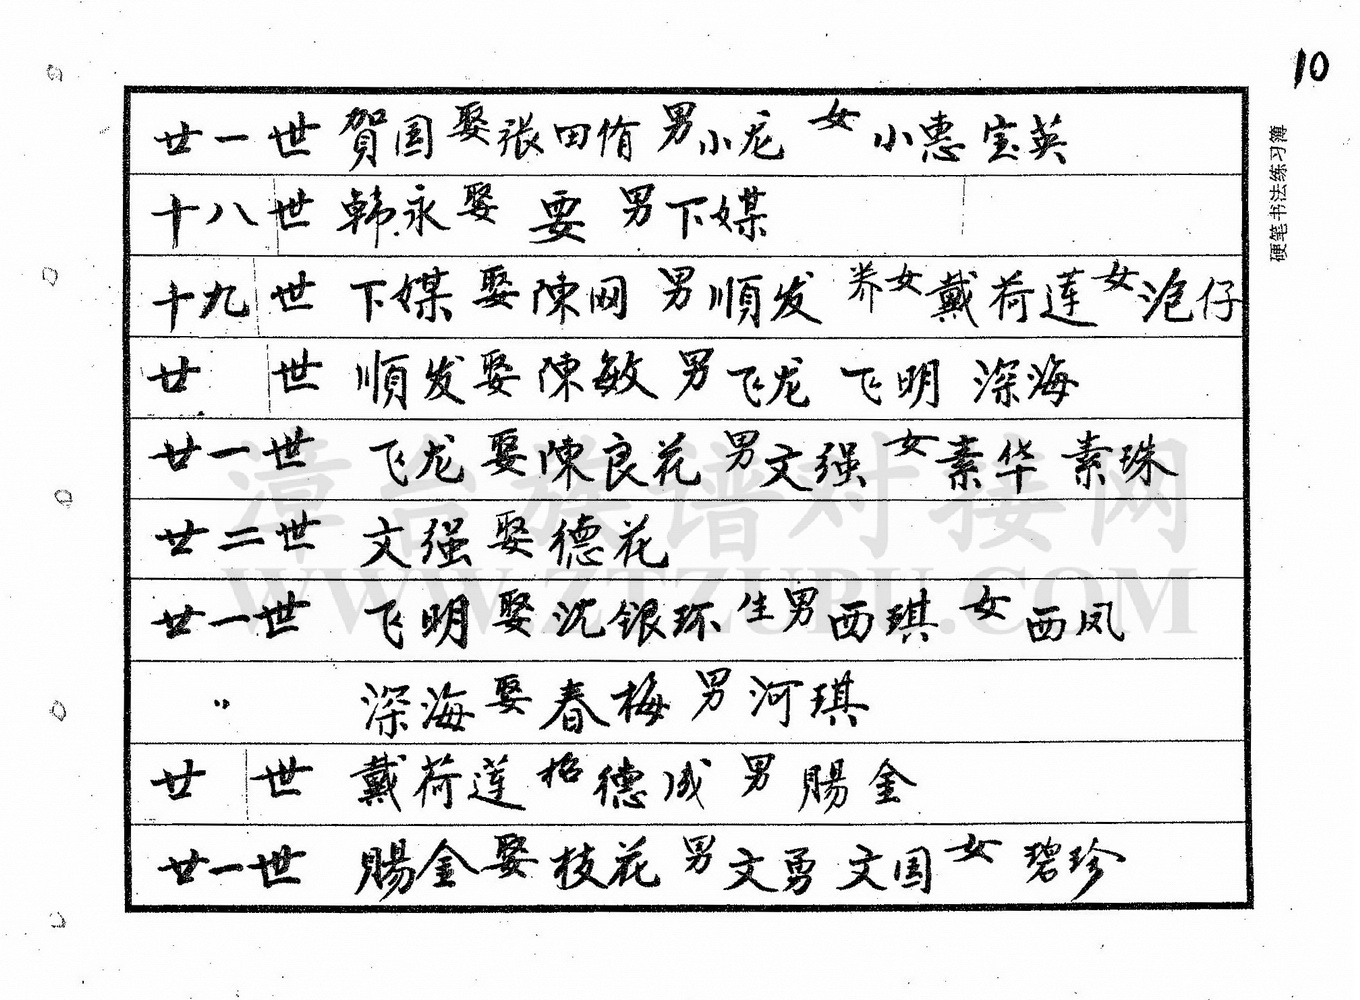 10
硬笔书法练习簿
廿一世 賀国 娶 张田侑 男 小龙 女 小惠 宝英
十八世 韩永 娶 要 男 下媒
十九世 下媒 娶 陳网 男 順发 养女 戴荷莲 女 沧仔
廿 世 順发 娶 陳敏 男 飞龙 飞明 深海
廿一世 飞龙 娶 陳良花 男 文强 女 素华 素珠
廿二世 文强 娶 德花
廿一世 飞明 娶 沈银环 生男 西琪 女 西凤
〃 深海 娶 春梅 男 河琪
廿 世 戴荷莲 招 德成 男 賜金
廿一世 賜金 娶 枝花 男 文勇 文国 女 碧珍
漳台族谱对接网
WWW.ZTZUPU.COM